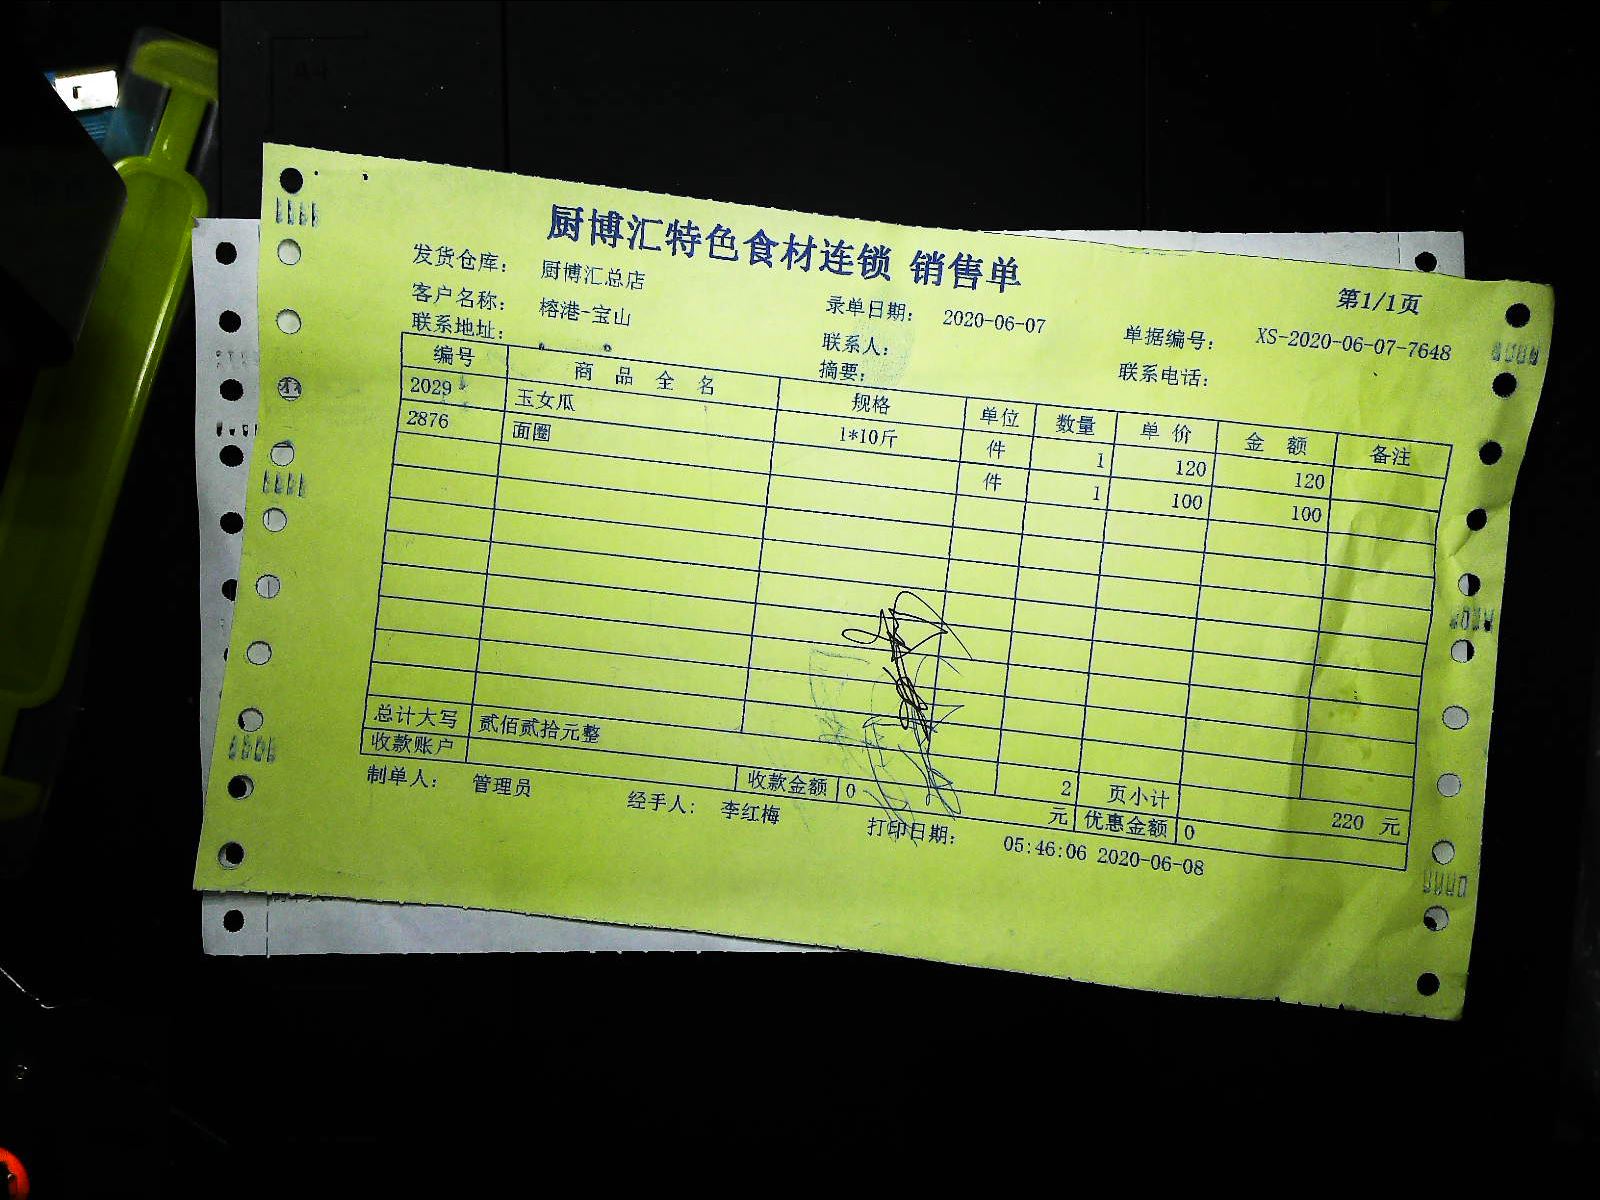 厨博汇特色食材连锁 销售单
第1/1页
发货仓库： 厨博汇总店 录单日期： 2020-06-07 单据编号： XS-2020-06-07-7648
客户名称： 榕港-宝山 联系人： 联系电话：
联系地址： 摘要：
编号 商 品 全 名 规格 单位 数量 单 价 金 额 备注
2029 玉女瓜 1*10斤 件 1 120 120
2876 面圈 件 1 100 100
总计大写 贰佰贰拾元整 2 页小计 220 元
收款账户 收款金额 0 元 优惠金额 0
制单人： 管理员 经手人： 李红梅 打印日期： 05:46:06 2020-06-08